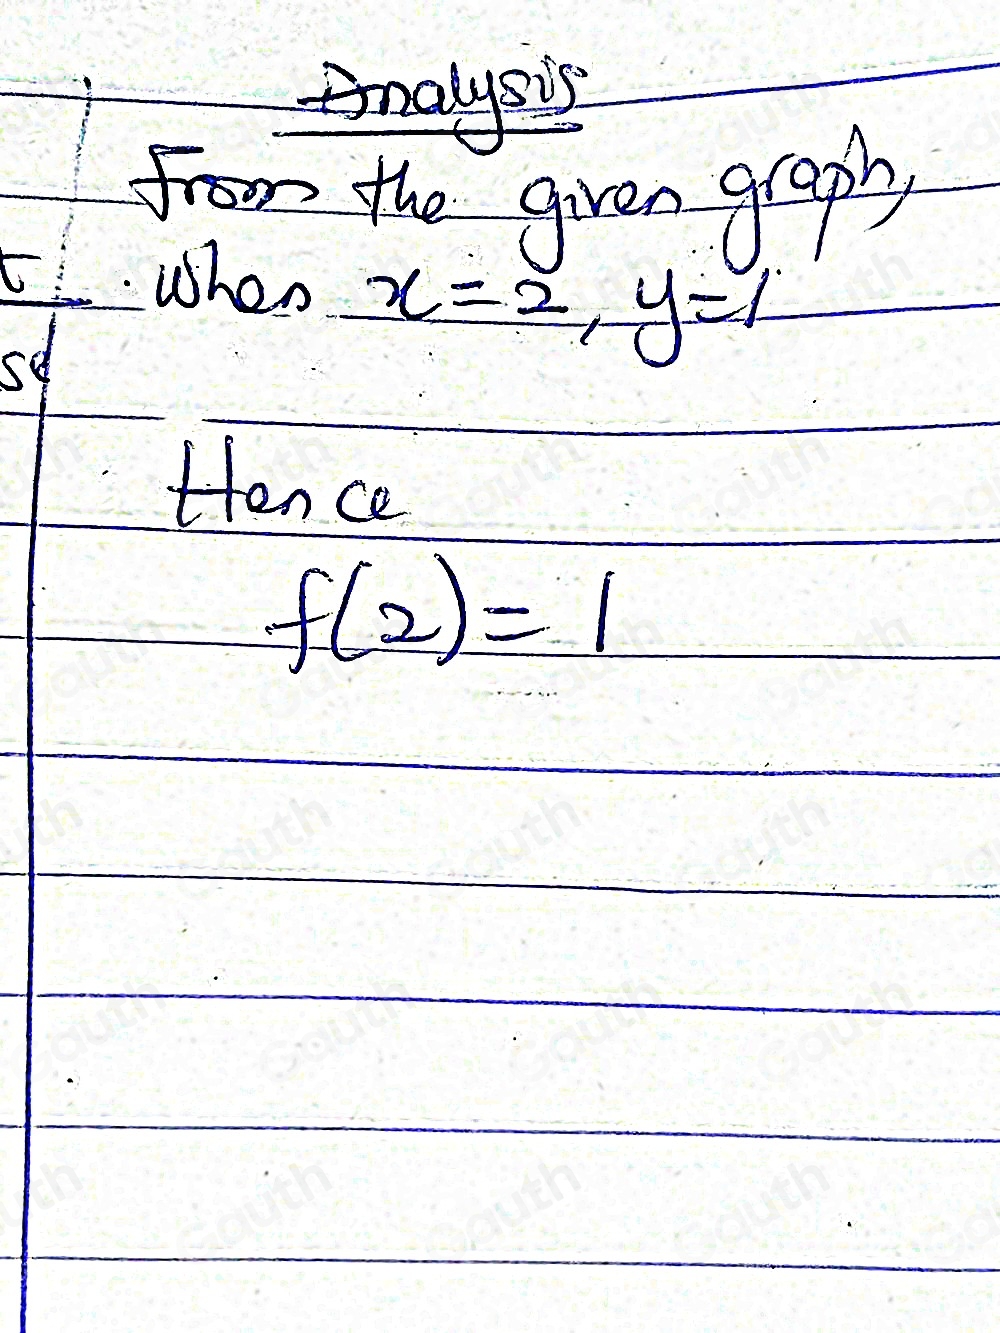 Analysis
From the given graph,
t When x = 2, y = 1
se
Hence
f(2) = 1